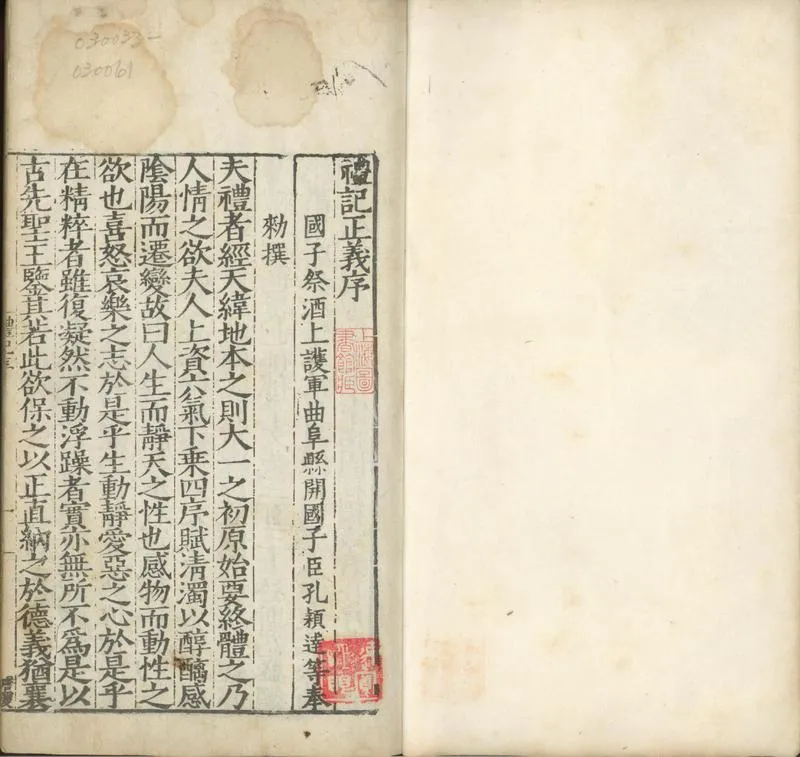 禮記正義序
國子祭酒上護軍曲阜縣開國子臣孔穎達等奉
勑撰
夫禮者經天緯地本之則大一之初原始要終體之乃
人情之欲夫人上資六氣下乗四序賦清濁以醇醨感
隂陽而遷變故曰人生而靜天之性也感物而動性之
欲也喜怒哀樂之志於是乎生動靜愛惡之心於是乎
在精粹者雖復凝然不動浮躁者實亦無所不爲是以
古先聖王鑒其若此欲保之以正直納之於德義猶襄
030033-
030061
上海圖
書館藏